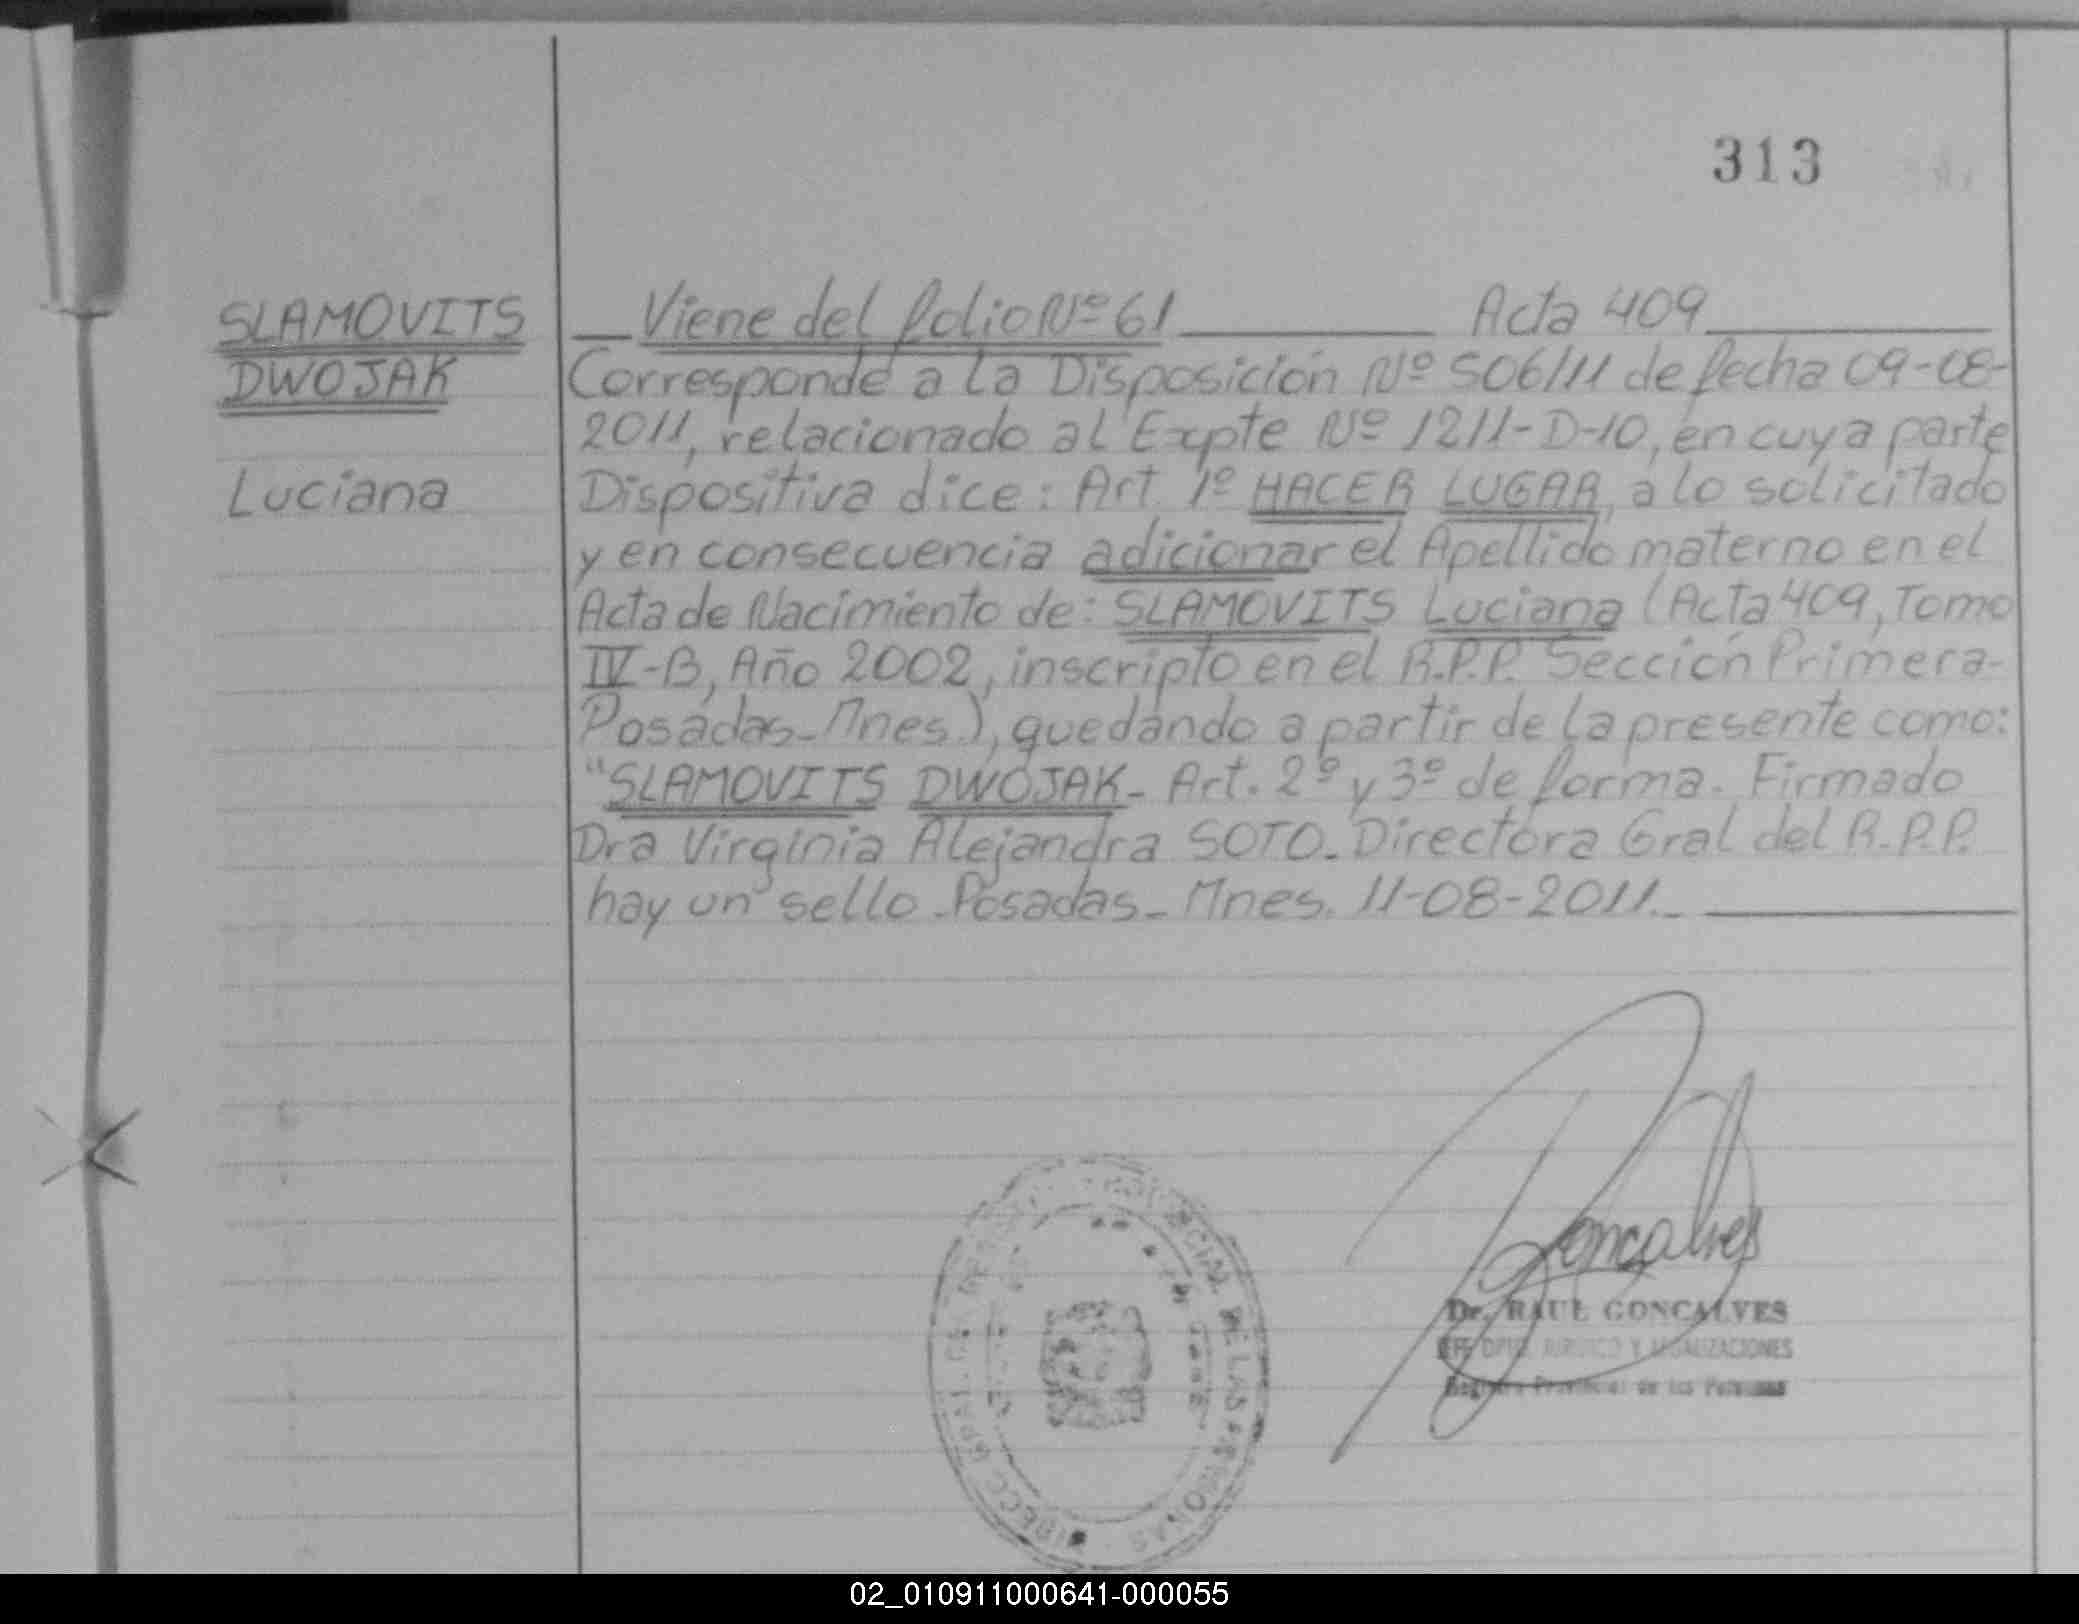 313
SLAMOVITS
DWOJAK
Luciana
Viene del folio Nº 61 Acta 409
Corresponde a la Disposición Nº 506/11 de fecha 09-08-
2011, relacionado al Expte Nº 1211-D-10, en cuya parte
Dispositiva dice: Art. 1º HACER LUGAR, a lo solicitado
y en consecuencia adicionar el Apellido materno en el
Acta de Nacimiento de: SLAMOVITS Luciana (Acta 409, Tomo
IV-B, Año 2002, inscripto en el R.P.P. Sección Primera-
Posadas-Mnes.), quedando a partir de la presente como:
"SLAMOVITS DWOJAK- Art. 2º y 3º de forma. Firmado
Dra Virginia Alejandra SOTO. Directora Gral del R.P.P.
hay un sello-Posadas-Mnes. 11-08-2011.-
Goncalves
Dr. RAUL GONCALVES
JURIDICO Y LEGALIZACIONES
Registro Provincial de las Personas
PROVINCIAL DE LAS PERSONAS
02_010911000641-000055